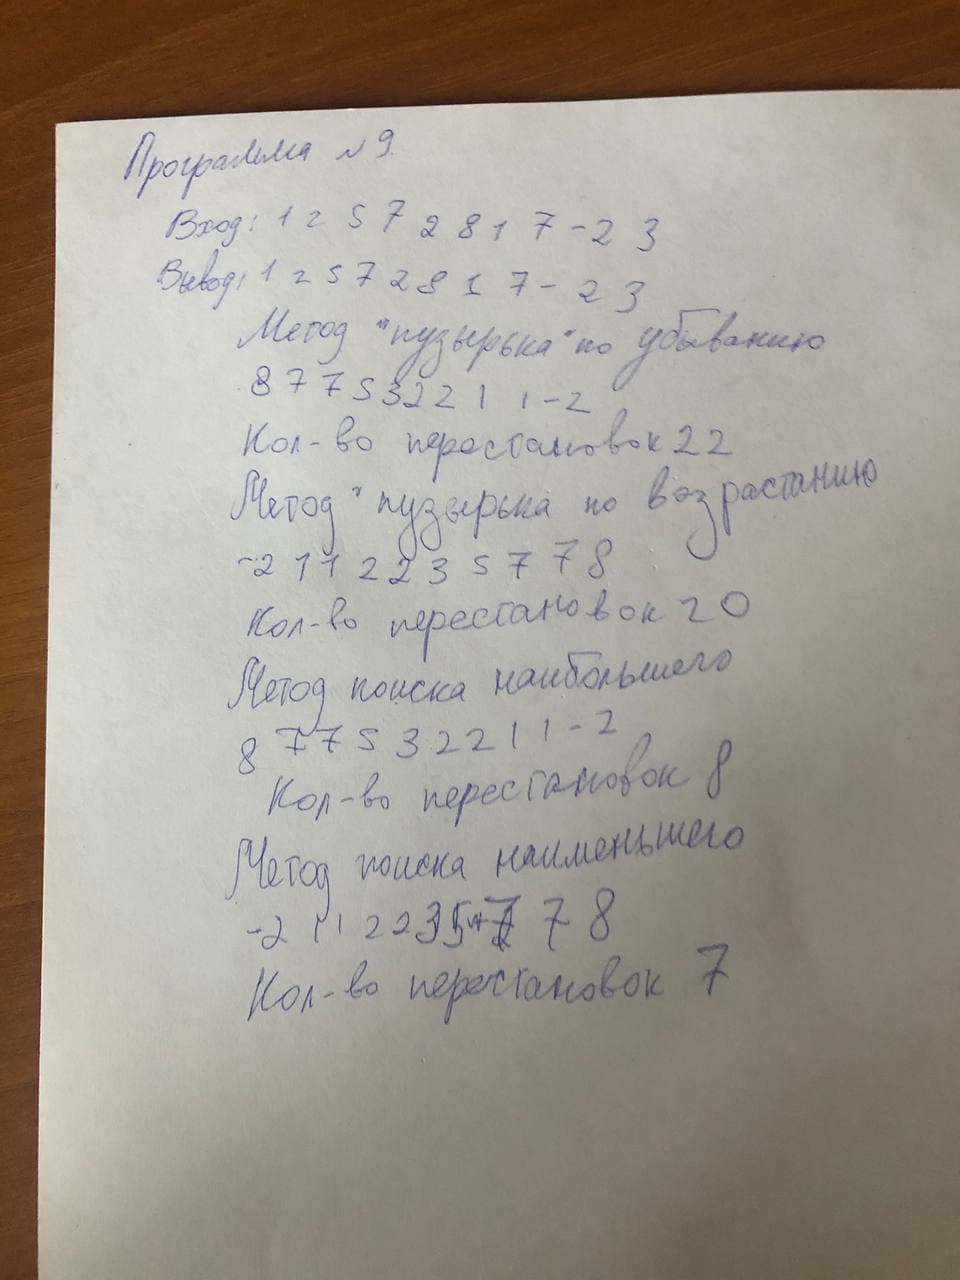 Программа №9.
Вход: 1 2 5 7 2 8 1 7 -2 3
Вывод: 1 2 5 7 2 8 1 7 -2 3
Метод "пузырька" по убыванию
8 7 7 5 3 2 2 1 1 -2
Кол-во перестановок 22
Метод "пузырька по возрастанию
-2 1 1 2 2 3 5 7 7 8
Кол-во перестановок 20
Метод поиска наибольшего
8 7 7 5 3 2 2 1 1 -2
Кол-во перестановок 8
Метод поиска наименьшего
-2 1 1 2 2 3 5 7 7 8
Кол-во перестановок 7